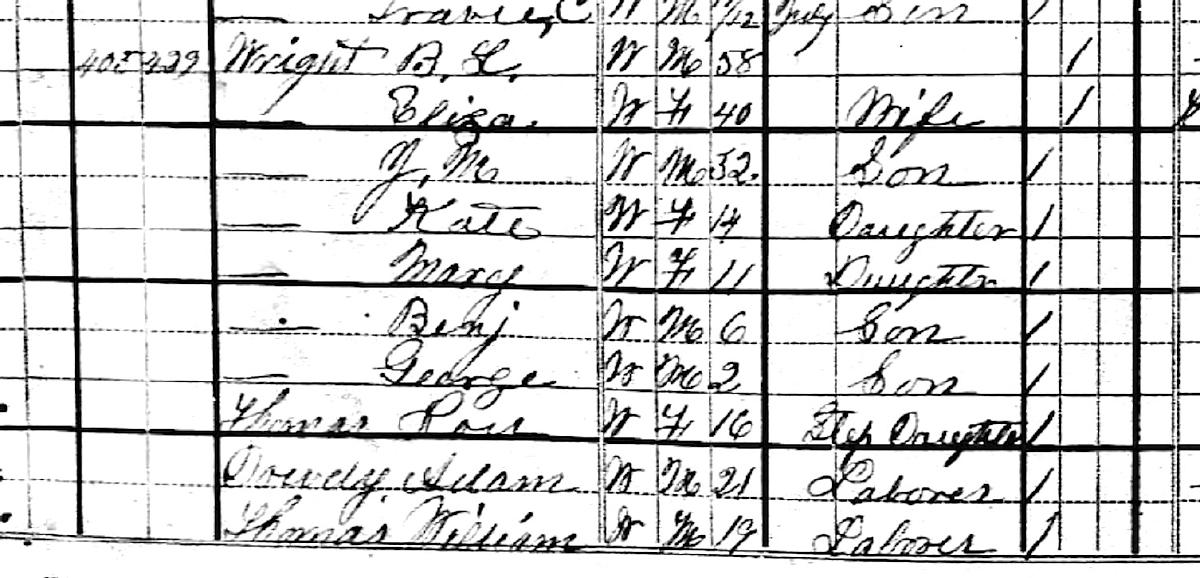 C W M 1/12 July Son 1
405 429 Wright B. L. W M 58 1
— Eliza. W F 40 Wife 1
— Y. M W M 32. Son 1
— Kate W F 14 Daughter 1
— Mary W F 11 Daughter 1
— Benj W M 6 Son 1
— George W M 2 Son 1
Thomas W F 16 Step Daughter 1
Dowdy Adam W M 21 Laborer 1
Thomas William W M 19 Laborer 1